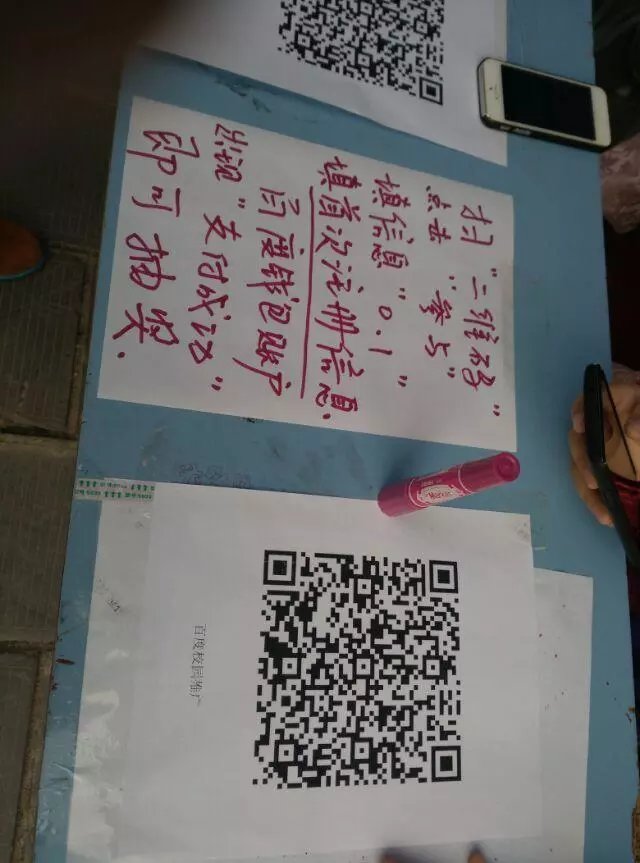 扫 "二维码"
点击 "参与"
填信息 "0.1"
填首次注册信息.
百度钱包账户
出现 "支付成功"
即可抽奖.
百度校园推广